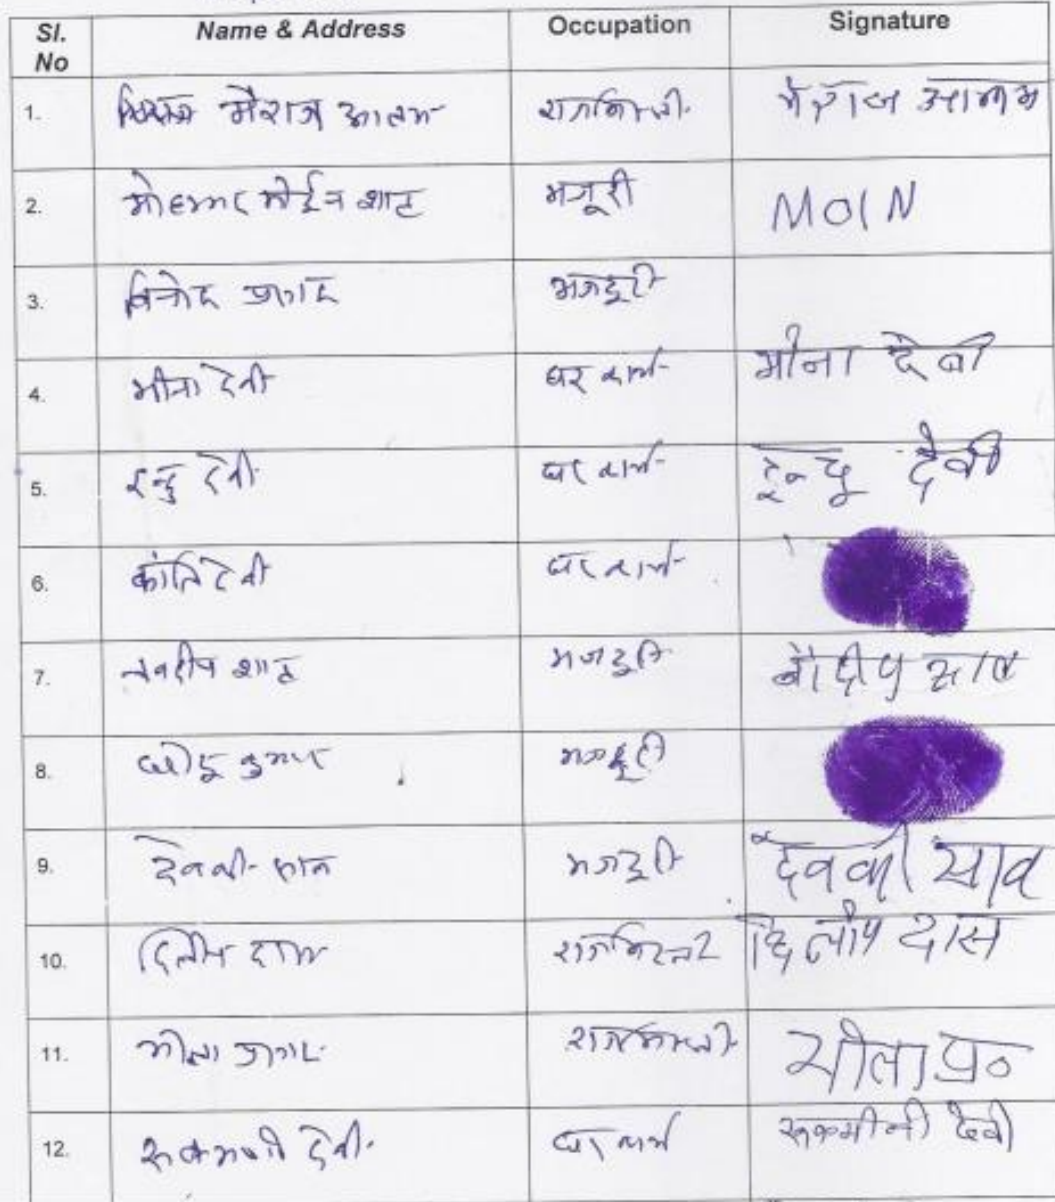 Sl. No Name & Address Occupation Signature
1. मैराज आलम राजमिस्त्री मैराज आलम
2. मोहम्मद मोईन शाह मजूरी MOIN
3. विनोद प्रसाद मजदूरी
4. मीना देवी घर कार्य मीना देवी
5. इन्दु देवी घर कार्य इन्दू देवी
6. कांति देवी घर कार्य
7. नवदीप शाह मजदुरी साव
8. कुमार मजदूरी
9. देवकी मजदुरी देवकी साव
10. दिलीप दास दिलीप दास
11. प्रसाद राजमिस्त्री
12. रुकमणी देवी घर कार्य रुकमीनी देवी